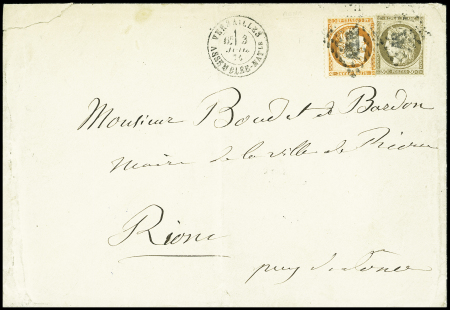 VERSAILLES
ASSEMBLÉE-NATLE
Monsieur Boudet de Bardon
Maire de la ville de Riom
Riom
puy de dome